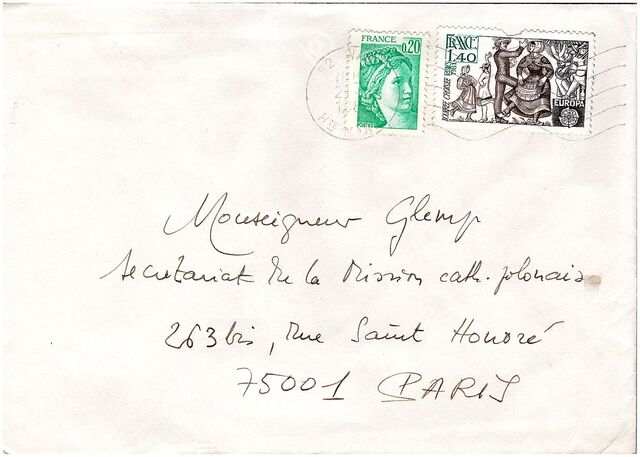 FRANCE
0,20
FRANCE
1,40
EUROPA
52
Hte MARNE
Monseigneur Glemp
Secretariat de la Mission cath. polonaise
263 bis, Rue Saint Honoré
75001 PARIS